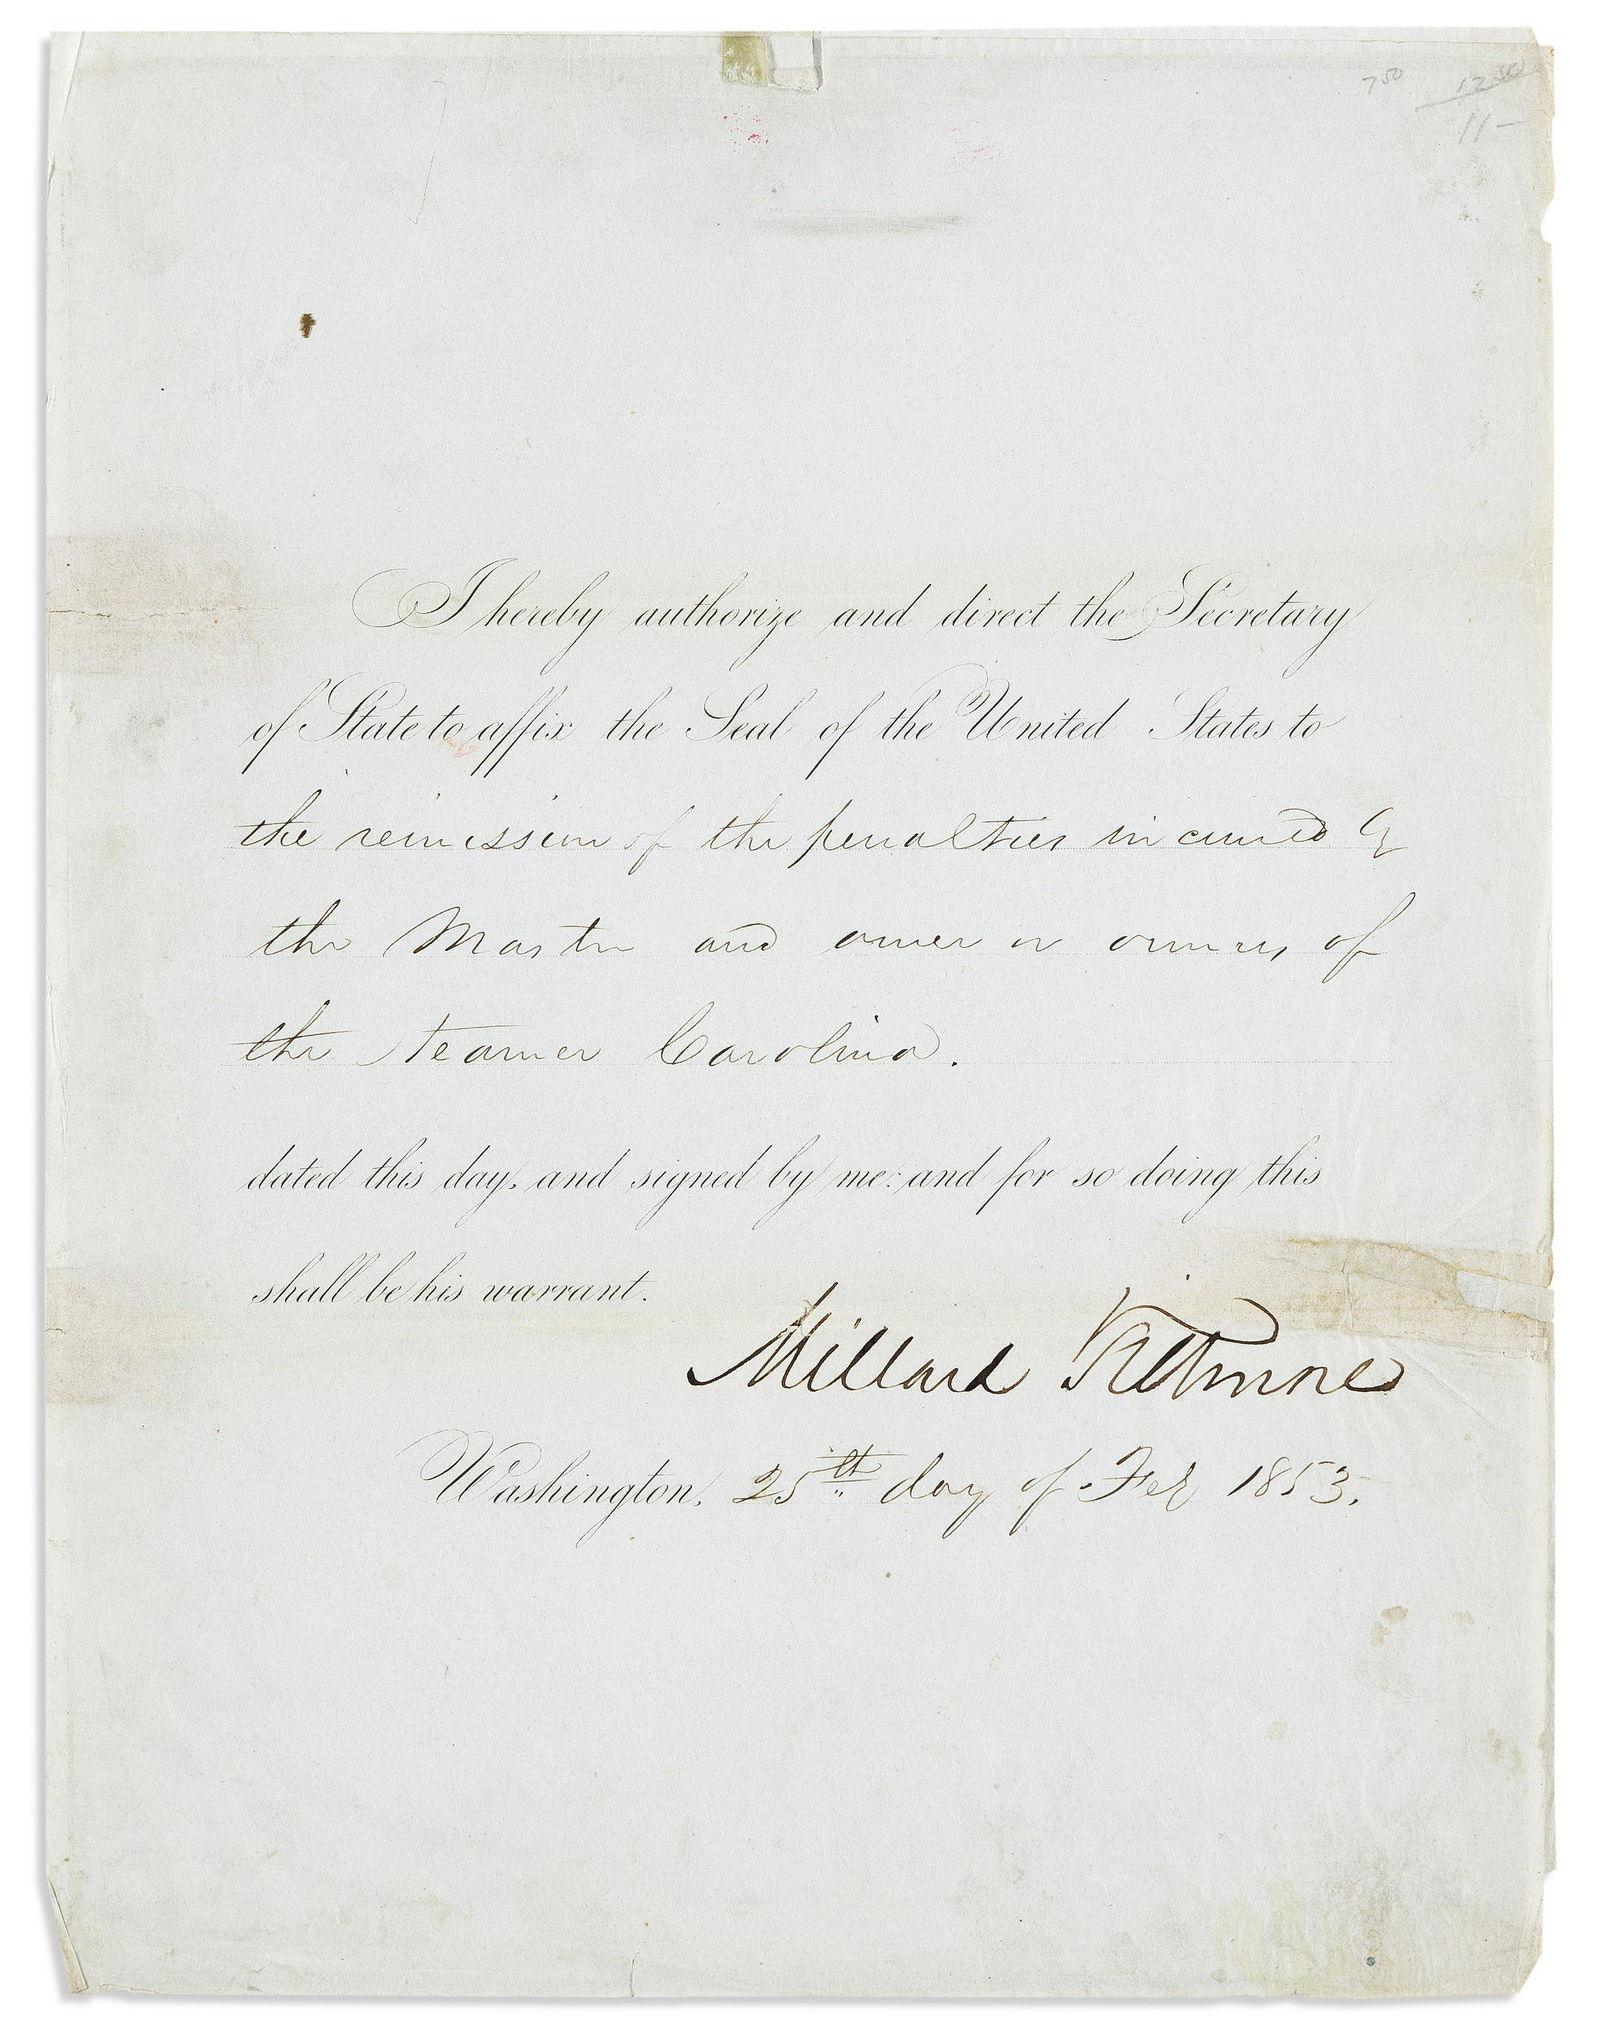 7 50
17 50
11 —
I hereby authorize and direct the Secretary
of State to affix the Seal of the United States to
the remission of the penalties incurred by
the Master and owner or owners of
the steamer Carolina.
dated this day, and signed by me: and for so doing this
shall be his warrant.
Millard Fillmore
Washington, 25th day of Feb 1853.